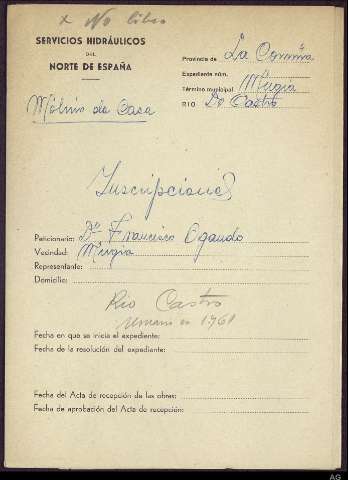 x No libro
SERVICIOS HIDRÁULICOS
DEL
NORTE DE ESPAÑA
Provincia de La Coruña
Expediente núm.
Término municipal Mugia
RIO Do Castro
Molino da Casa
Inscripciones
Peticionario: Dn Francisco Ogando
Vecindad: Mugia
Representante:
Domicilio:
Rio Castro
en 1961
Fecha en que se inicia el expediente:
Fecha de la resolución del expediente:
Fecha del Acta de recepción de las obras:
Fecha de aprobación del Acta de recepción:
AG